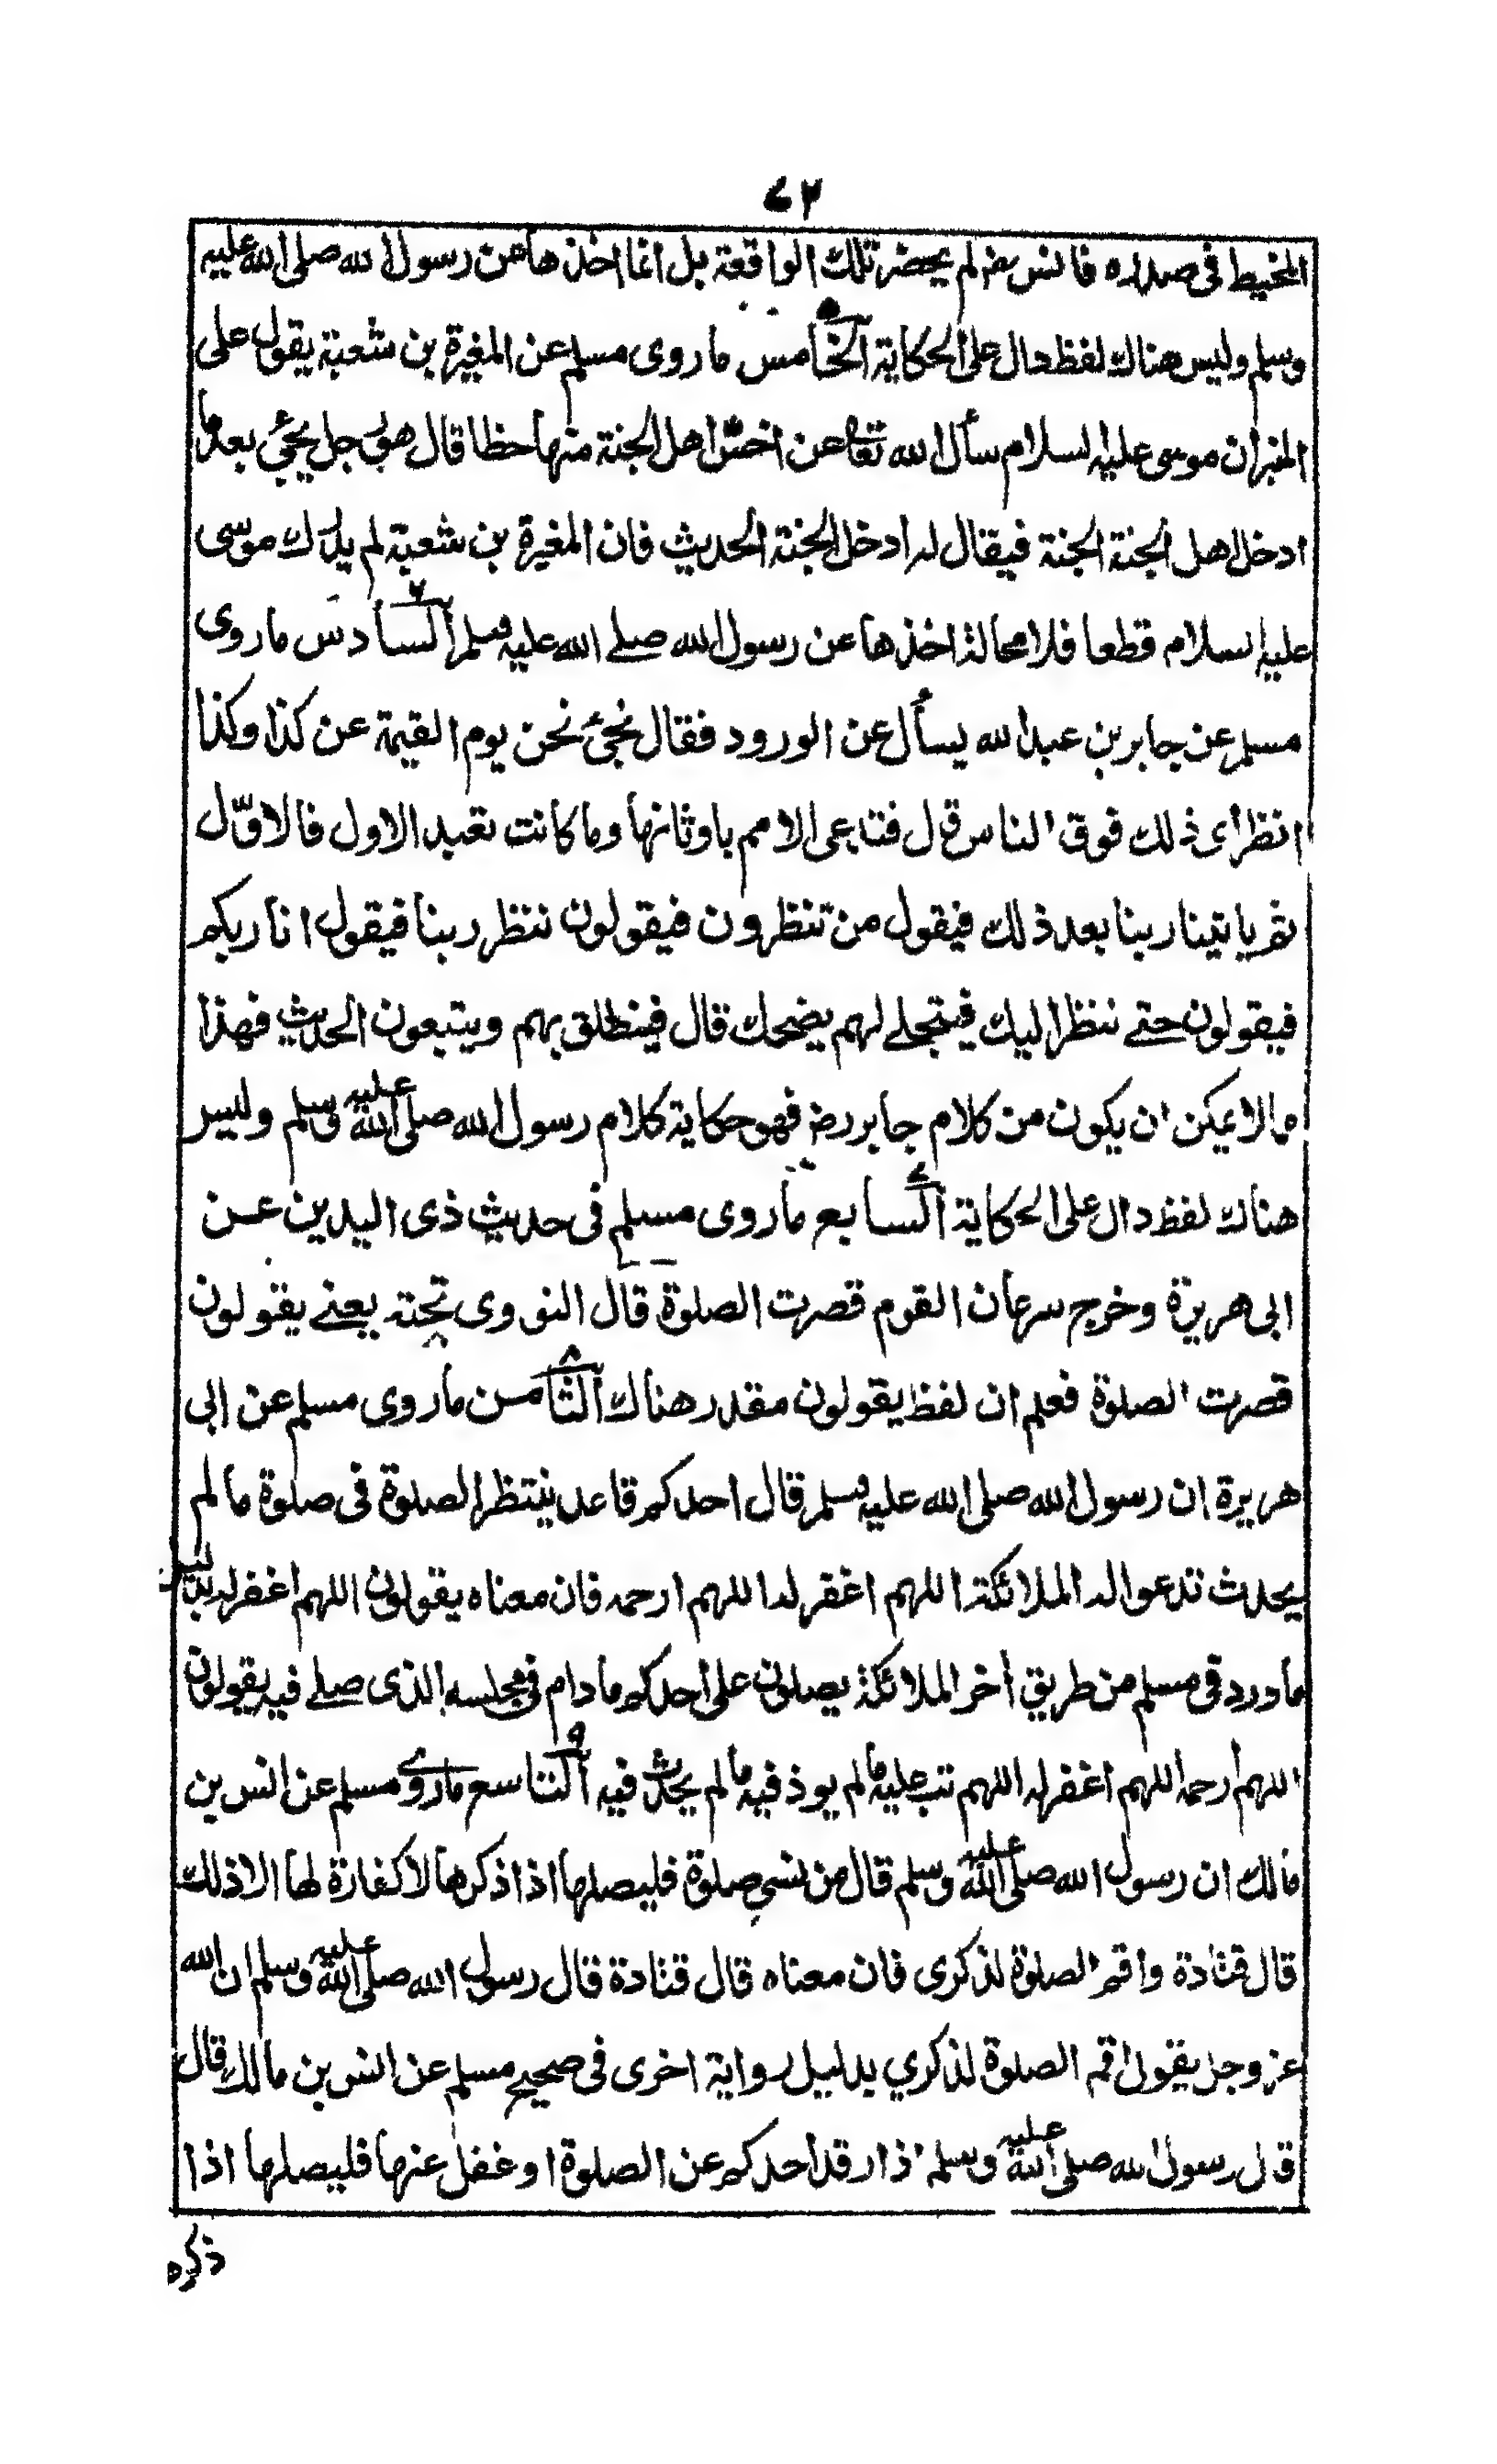 ٧٢
المخيط فى صدره فانس رض لم يحضر تلك الواقعة بل انما اخذها عن رسول الله صلى الله عليه
وسلم وليس هناك لفظ دال على الحكاية الخامس ما روى مسلم عن المغيرة بن شعبة يقول على
المنبر ان موسى عليه السلام سأل الله تعا عن اخس اهل الجنة منها حظا قال هو رجل يجئ بعد ما
ادخل اهل الجنة الجنة فيقال له ادخل الجنة الحديث فان المغيرة بن شعبة لم يدرك موسى
عليه السلام قطعا فلا محالة اخذها عن رسول الله صلے الله عليه وسلم السادس ما روى
مسلم عن جابر بن عبد الله يسأل عن الورود فقال نجئ نحن يوم القيمة عن كذا وكذا
انظر أى ذلك فوق الناس قال فتدعى الامم باوثانها وما كانت تعبد الاول فالاوّل
ثم ياتينا ربنا بعد ذلك فيقول من تنظرون فيقولون ننتظر ربنا فيقول انا ربكم
فيقولون حتے ننظر اليك فيتجلے لهم يضحك قال فينطلق بهم ويتبعون الحديث فهذا
ما لا يمكن ان يكون من كلام جابر رض فهو حكاية كلام رسول الله صلى الله عليه وسلم وليس
هناك لفظ دال على الحكاية السابع ما روى مسلم فى حديث ذى اليدين عن
ابى هريرة وخرج سرعان القوم قصرت الصلوة قال النووى تحته يعنے يقولون
قصرت الصلوة فعلم ان لفظ يقولون مقدر هناك الثامن ما روى مسلم عن ابى
هريرة ان رسول الله صلى الله عليه وسلم قال احدكم قاعد ينتظر الصلوة فى صلوة ما لم
يحدث تدعوا له الملائكة اللهم اغفر له اللهم ارحمه فان معناه يقولون اللهم اغفر له بدليل
ما ورد فى مسلم من طريق أخر الملائكة يصلون على أحدكم ما دام فى مجلسه الذى صلے فيه يقولون
اللهم ارحمه اللهم اغفر له اللهم تب عليه ما لم يوذ فيه ما لم يحدث فيه التاسع ما روے مسلم عن انس بن
مالك ان رسول الله صلى الله عليه وسلم قال من نسي صلوة فليصلها اذا ذكرها لا كفارة لها الا ذلك
قال قتادة واقم الصلوة لذكرى فان معناه قال قتادة قال رسول الله صلى الله عليه وسلم ان الله
عز وجل يقول اقم الصلوة لذكري بدليل رواية اخرى فى صحيح مسلم عن انس بن مالك قال
قال رسول الله صلى الله عليه وسلم اذا رقد احدكم عن الصلوة او غفل عنها فليصلها اذا
ذكره